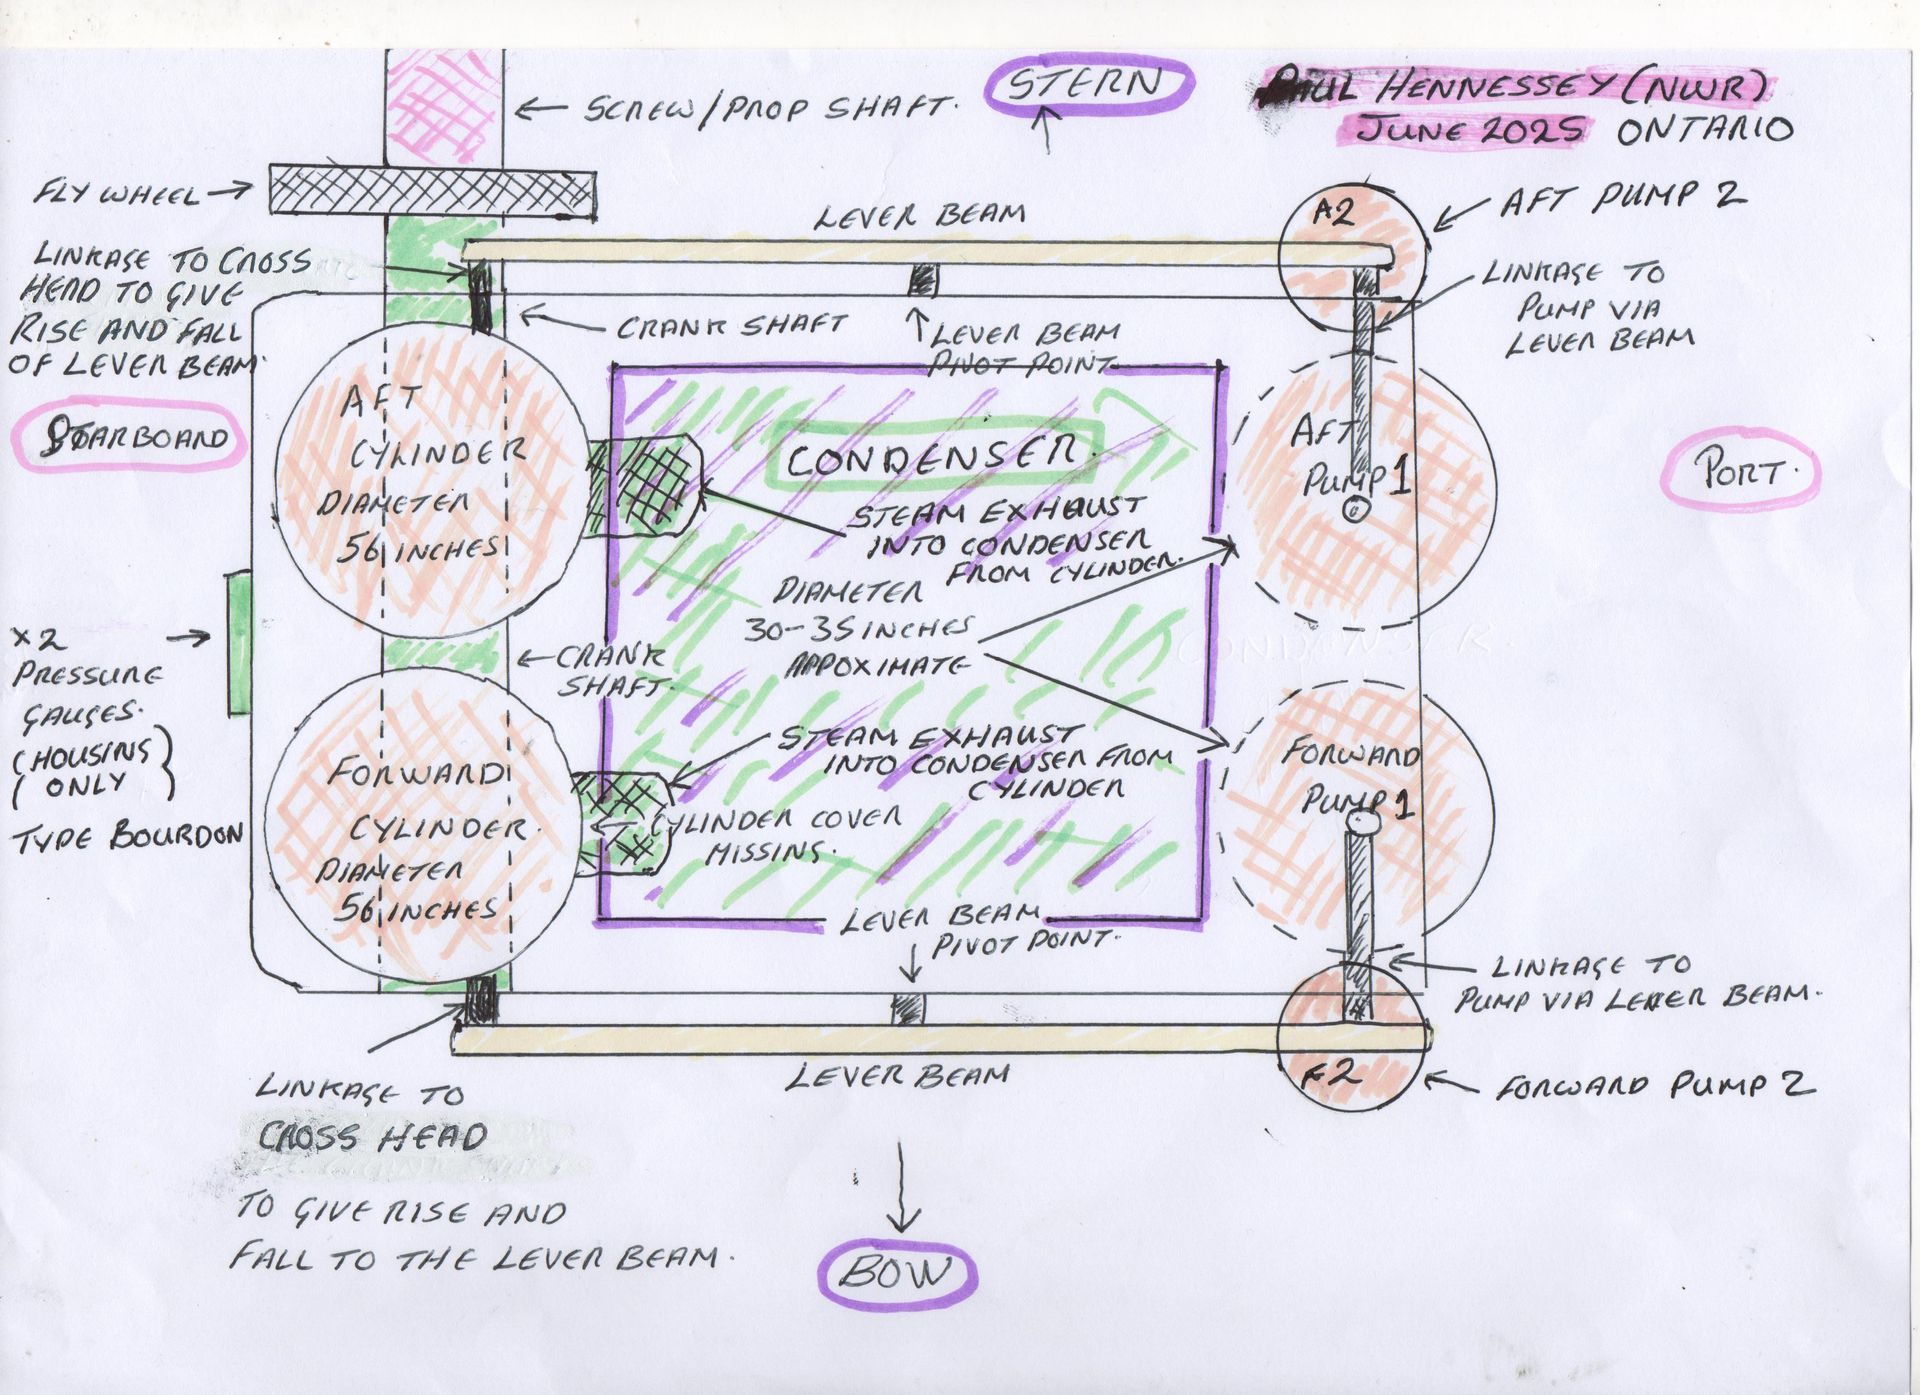 STERN
PAUL HENNESSEY (NWR)
JUNE 2025 ONTARIO
← SCREW/PROP SHAFT.
FLY WHEEL →
LEVER BEAM
A2
AFT PUMP 2
LINKAGE TO CROSS
HEAD TO GIVE
RISE AND FALL
OF LEVER BEAM.
CRANK SHAFT
LEVER BEAM
PIVOT POINT
LINKAGE TO
PUMP VIA
LEVER BEAM
STARBOARD
AFT
CYLINDER
DIAMETER
56 INCHES
CONDENSER.
AFT
PUMP 1
PORT.
STEAM EXHAUST
INTO CONDENSER
FROM CYLINDER.
DIAMETER
30-35 INCHES
APPOXIMATE
X2
PRESSURE
GAUGES.
(HOUSING)
( ONLY )
TYPE BOURDON
CRANK
SHAFT.
FORWARD
CYLINDER.
DIAMETER
56 INCHES
STEAM EXHAUST
INTO CONDENSER FROM
CYLINDER
CYLINDER COVER
MISSING.
FORWARD
PUMP 1
LEVER BEAM
PIVOT POINT.
LINKAGE TO
PUMP VIA LEVER BEAM.
LEVER BEAM
F2
FORWARD PUMP 2
LINKAGE TO
CROSS HEAD
TO GIVE RISE AND
FALL TO THE LEVER BEAM.
BOW